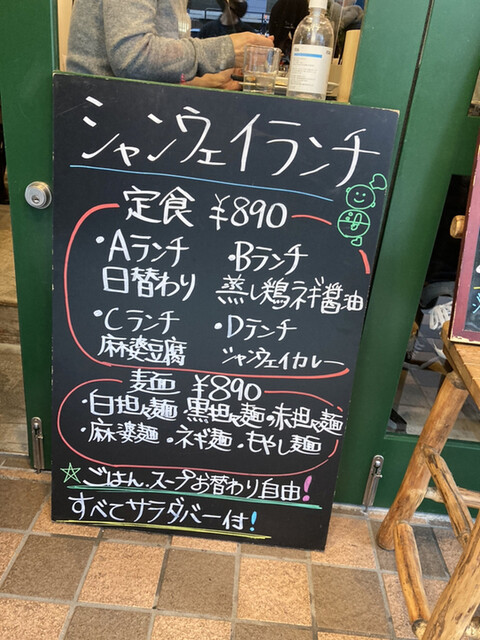 シャンウェイランチ
定食 ¥890
・Aランチ ・Bランチ
日替わり 蒸し鶏ネギ醤油
・Cランチ ・Dランチ
麻婆豆腐 シャンウェイカレー
麺 ¥890
・白坦々麺・黒坦々麺・赤坦々麺
・麻婆麺 ・ネギ麺 ・もやし麺
☆ごはん、スープお替わり自由!
すべてサラダバー付!